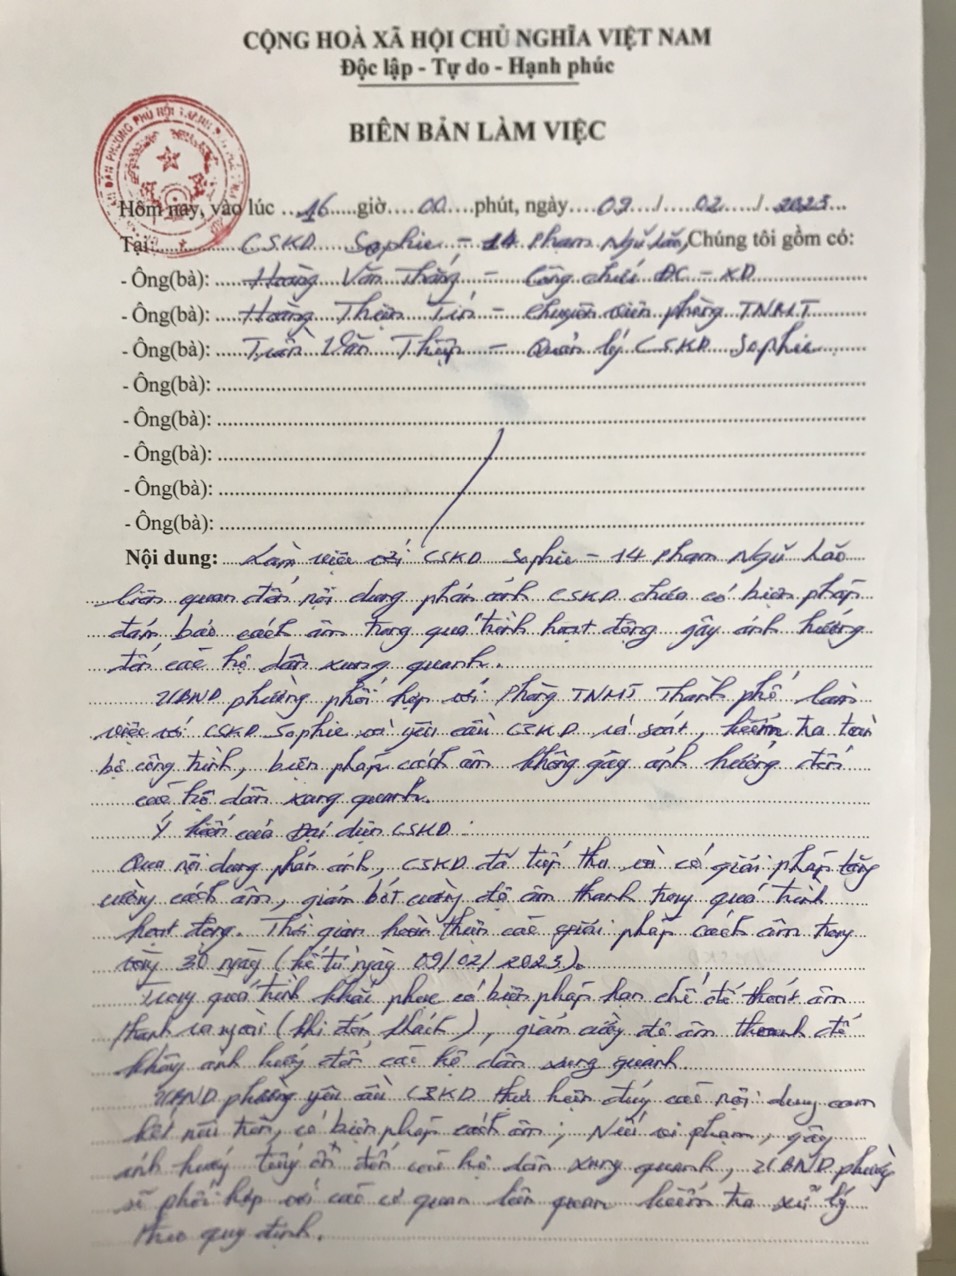 CỘNG HOÀ XÃ HỘI CHỦ NGHĨA VIỆT NAM
Độc lập - Tự do - Hạnh phúc
BIÊN BẢN LÀM VIỆC
Hôm nay, vào lúc 16 giờ 00 phút, ngày 09 / 02 / 2023
Tại: CSKD Sophie - 14 Phạm Ngũ Lão, Chúng tôi gồm có:
- Ông(bà): Hoàng Văn Thắng - Công chức ĐC - XD
- Ông(bà): Hoàng Thiện Tín - Chuyên viên phòng TNMT
- Ông(bà): Trần Văn Thiệp - Quản lý CSKD Sophie
- Ông(bà):
- Ông(bà):
- Ông(bà):
- Ông(bà):
- Ông(bà):
Nội dung: Làm việc với CSKD Sophie - 14 Phạm Ngũ Lão
liên quan đến nội dung phản ánh CSKD chưa có biện pháp
đảm bảo cách âm trong quá trình hoạt động gây ảnh hưởng
đến các hộ dân xung quanh.
UBND phường phối hợp với Phòng TNMT Thành phố làm
việc với CSKD Sophie và yêu cầu CSKD rà soát, kiểm tra toàn
bộ công trình, biện pháp cách âm không gây ảnh hưởng đến
các hộ dân xung quanh.
Ý kiến của Đại diện CSKD:
Qua nội dung phản ánh, CSKD đã tiếp thu và có giải pháp tăng
cường cách âm, giảm bớt cường độ âm thanh trong quá trình
hoạt động. Thời gian hoàn thiện các giải pháp cách âm trong
vòng 30 ngày (kể từ ngày 09/02/2023).
Trong quá trình khắc phục có biện pháp hạn chế để thoát âm
thanh ra ngoài (khi đón khách), giảm cường độ âm thanh để
không ảnh hưởng đến các hộ dân xung quanh
UBND phường yêu cầu CSKD thực hiện đúng các nội dung cam
kết nêu trên, có biện pháp cách âm; Nếu vi phạm, gây
ảnh hưởng tiếng ồn đến các hộ dân xung quanh, UBND phường
sẽ phối hợp với các cơ quan liên quan kiểm tra xử lý
theo quy định.